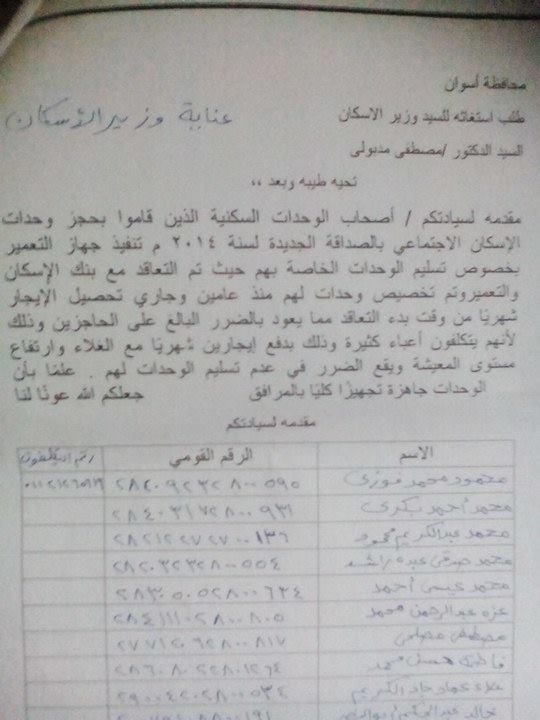 محافظة أسوان
طلب استغاثه للسيد وزير الاسكان
عناية وزير الأسكان
السيد الدكتور /مصطفى مدبولى
تحيه طيبه وبعد ،،
مقدمه لسيادتكم / أصحاب الوحدات السكنية الذين قاموا بحجز وحدات
الإسكان الاجتماعي بالصداقة الجديدة لسنة ٢٠١٤ م تنفيذ جهاز التعمير
بخصوص تسليم الوحدات الخاصة بهم حيث تم التعاقد مع بنك الإسكان
والتعميروتم تخصيص وحدات لهم منذ عامين وجاري تحصيل الإيجار
شهريًا من وقت بدء التعاقد مما يعود بالضرر البالغ على الحاجزين وذلك
لأنهم يتكلفون أعباء كثيرة وذلك بدفع إيجارين شهريًا مع الغلاء وارتفاع
مستوى المعيشة ويقع الضرر في عدم تسليم الوحدات لهم . علمًا بأن
الوحدات جاهزة تجهيزًا كليًا بالمرافق جعلكم الله عونًا لنا
مقدمه لسيادتكم
الاسم الرقم القومي رقم التليفون
محمود محمد فوزى ٢٨٢٠٩٢٣٢٨٠٠٥٩٥
محمد أحمد بكرى ٢٨٤٠٣١٧٢٨٠٠٩٣١
محمد عبدالكريم محمود ٢٨٢١٢٢٧٢٧٠٠١٣٦
محمد صدقى عبده راشد ٢٨٢٠٢٢٣٢٨٠٠٥٥٤
محمد عيسى أحمد ٢٨٣٠٥٠٥٢٨٠٠٦٣٤
عزه عبدالرحمن محمد ٢٨٤١١١٠٢٨٠٠٨٠٥
مصطفى ٢٧٧١٢٠٦٢٨٠٠٨١٧
فاطمة حسن محمد ٢٨٦٠٨٠٢٢٨٠١٢٦٤
علاء عماد جاد الكريم ٢٩٠٠٤٢٠٢٨٠٠٥٣٤
خالد